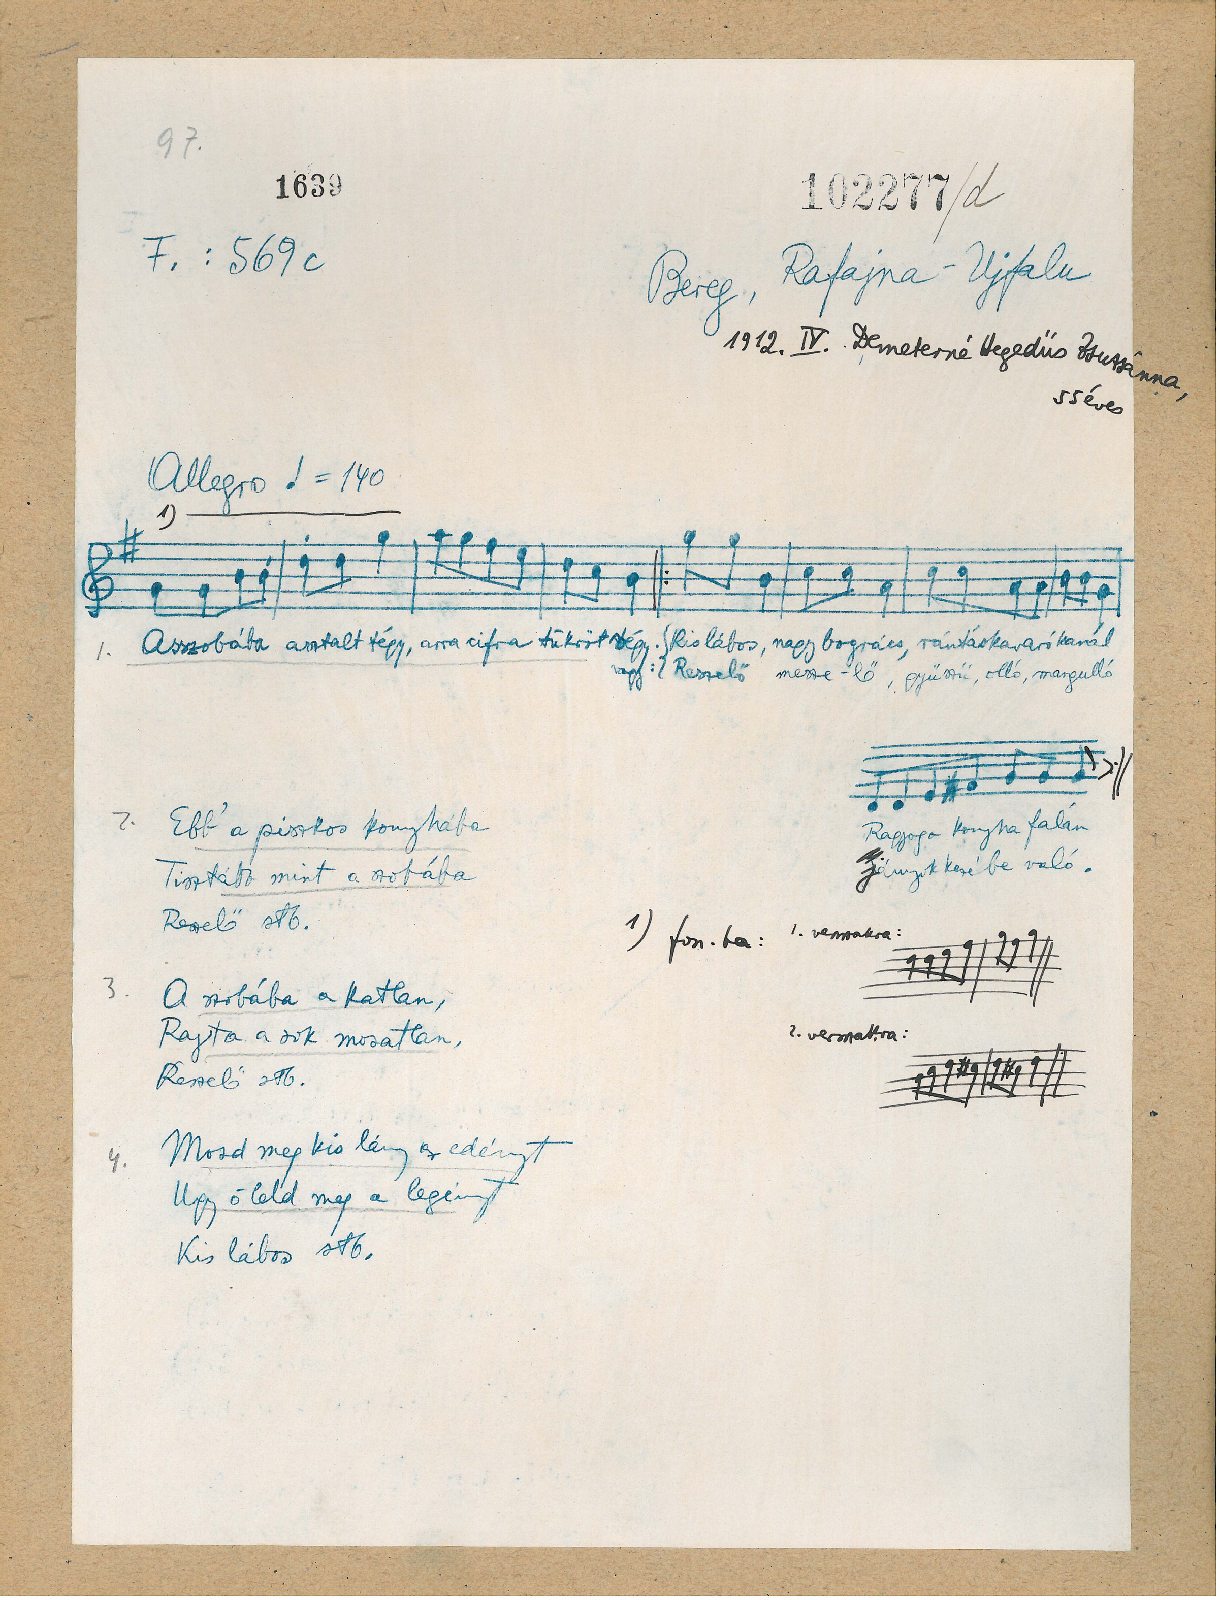 97.
1639
102277/d
F. : 569c
Bereg, Rafajna-Ujfalu
1912. IV. Demeterné Hegedüs Zsuzsánna,
55 éves
Allegro ♩ = 140
1)
1. A szobába asztalt tégy, arra cifra tükröt tégy. Kis lábos, nagy bogrács, rántáskavaró kanál
vagy: Reszelő mesze-lő, gyüszü, olló, margulló
Ragyogo konyha falán
Lányok kezébe való.
2. Ebb' a piszkos konyhába
Tisztább mint a szobába
Reszelő stb.
1) fon.-ba: 1. versszakra:
3. A szobába a katlan,
Rajta a sok mosatlan,
Reszelő stb.
2. versszakra:
4. Mosd meg kis lány az edényt
Ugy öleld meg a legényt
Kis lábos stb.